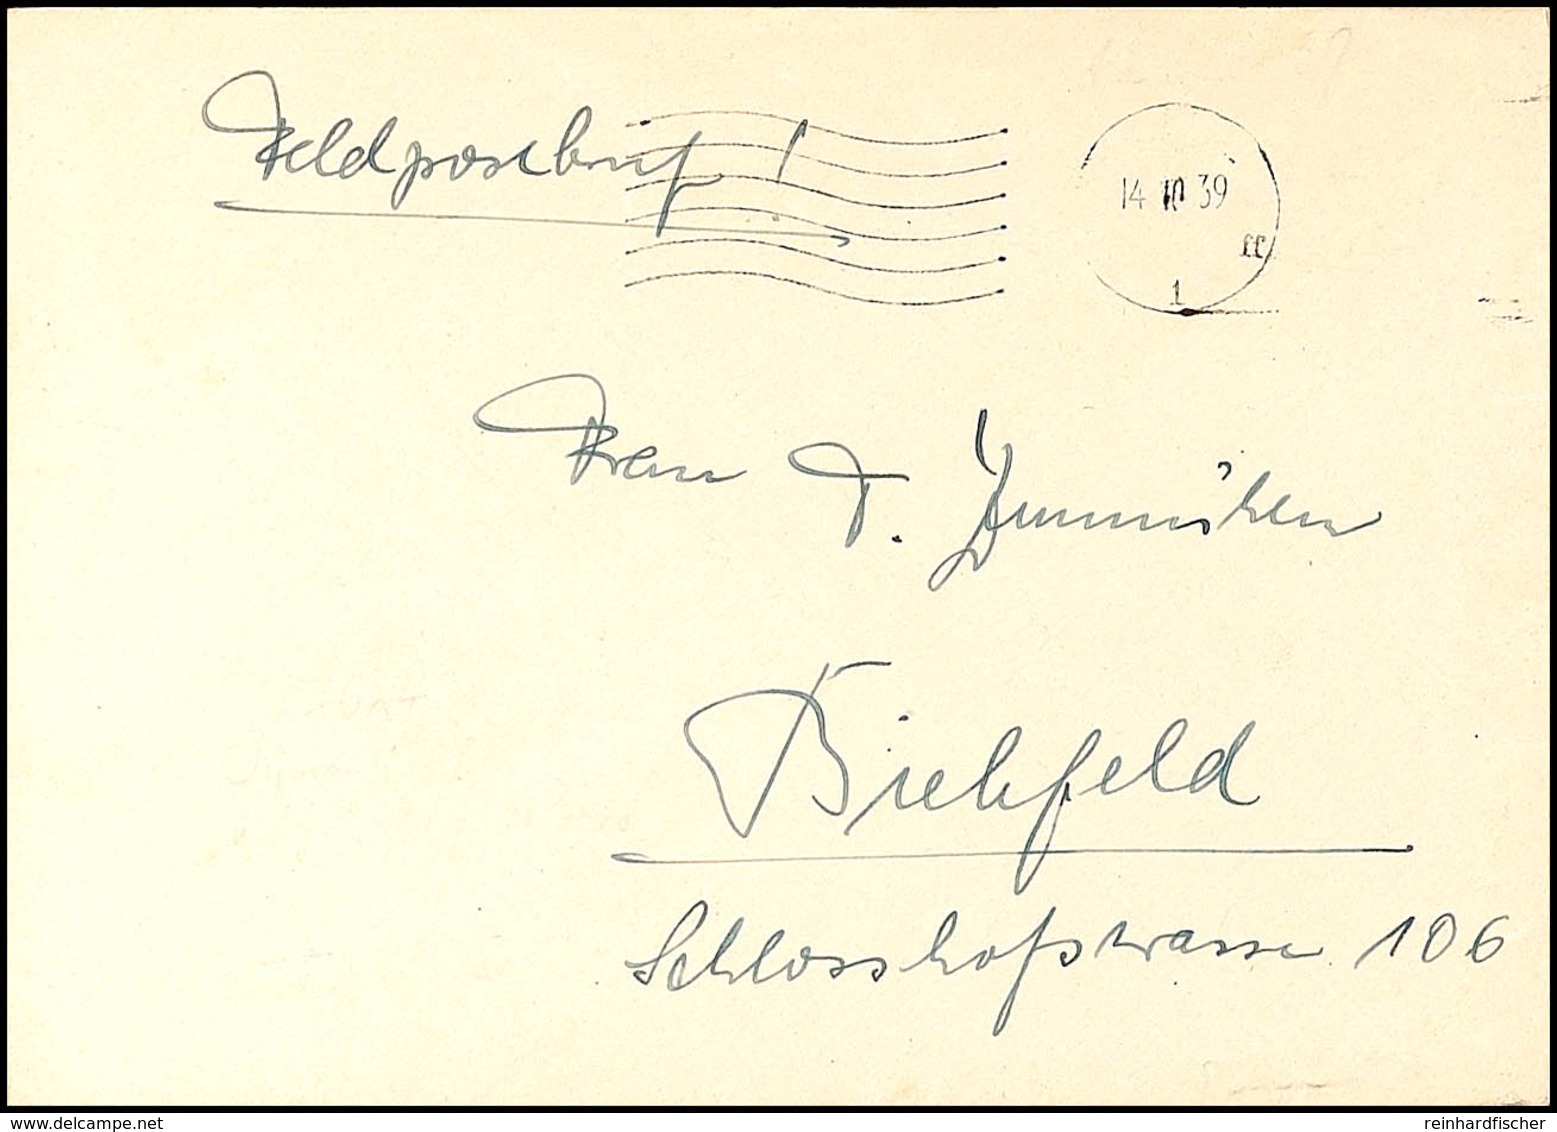 Feldpostbrief!
14 10 39
ff
1
Frau T.
Bielefeld
Schlosshofstrasse 106
delcampe.net
reinhardfischer